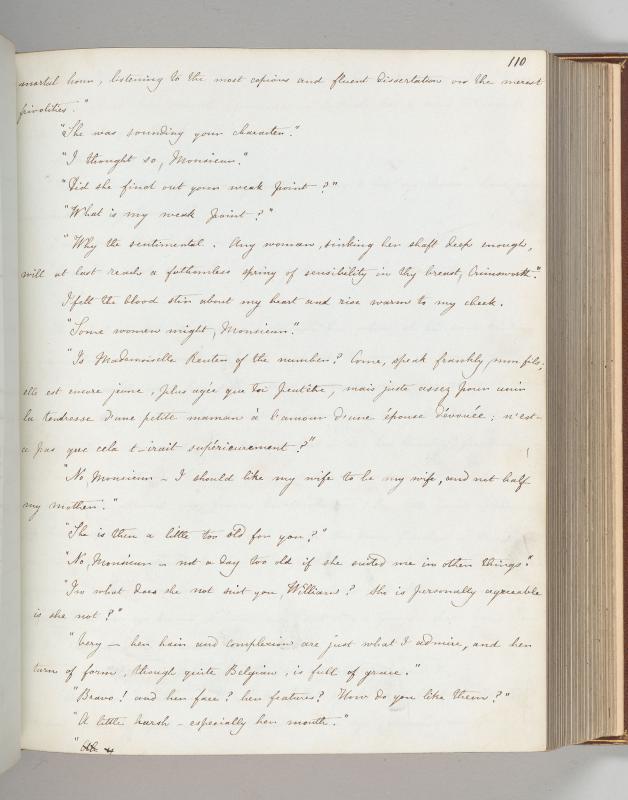 110
mortal hour, listening to the most copious and fluent dissertation on the merest
frivolities."
"She was sounding your character."
"I thought so, Monsieur."
"Did she find out your weak point?"
"What is my weak point?"
"Why the sentimental. Any woman, sinking her shaft deep enough,
will at last reach a fathomless spring of sensibility in thy breast, Crimsworth."
I felt the blood stir about my heart and rise warm to my cheek.
"Some women might, Monsieur."
"Is Mademoiselle Reuter of the number? Come, speak frankly, mon fils;
elle est encore jeune, plus agée que toi peutêtre, mais juste assez pour unir
la tendresse d'une petite maman à l'amour d'une épouse dévouée; n'est-
ce pas que cela t-irait supérieurement?"
"No, Monsieur – I should like my wife to be my wife, and not half
my mother."
"She is then a little too old for you?"
"No, Monsieur – not a day too old if she suited me in other things."
"In what does she not suit you, William? She is personally agreeable
is she not?"
"Very – her hair and complexion are just what I admire, and her
turn of form, though quite Belgian, is full of grace."
"Bravo! and her face? her features? How do you like them?"
"A little harsh – especially her mouth."
"